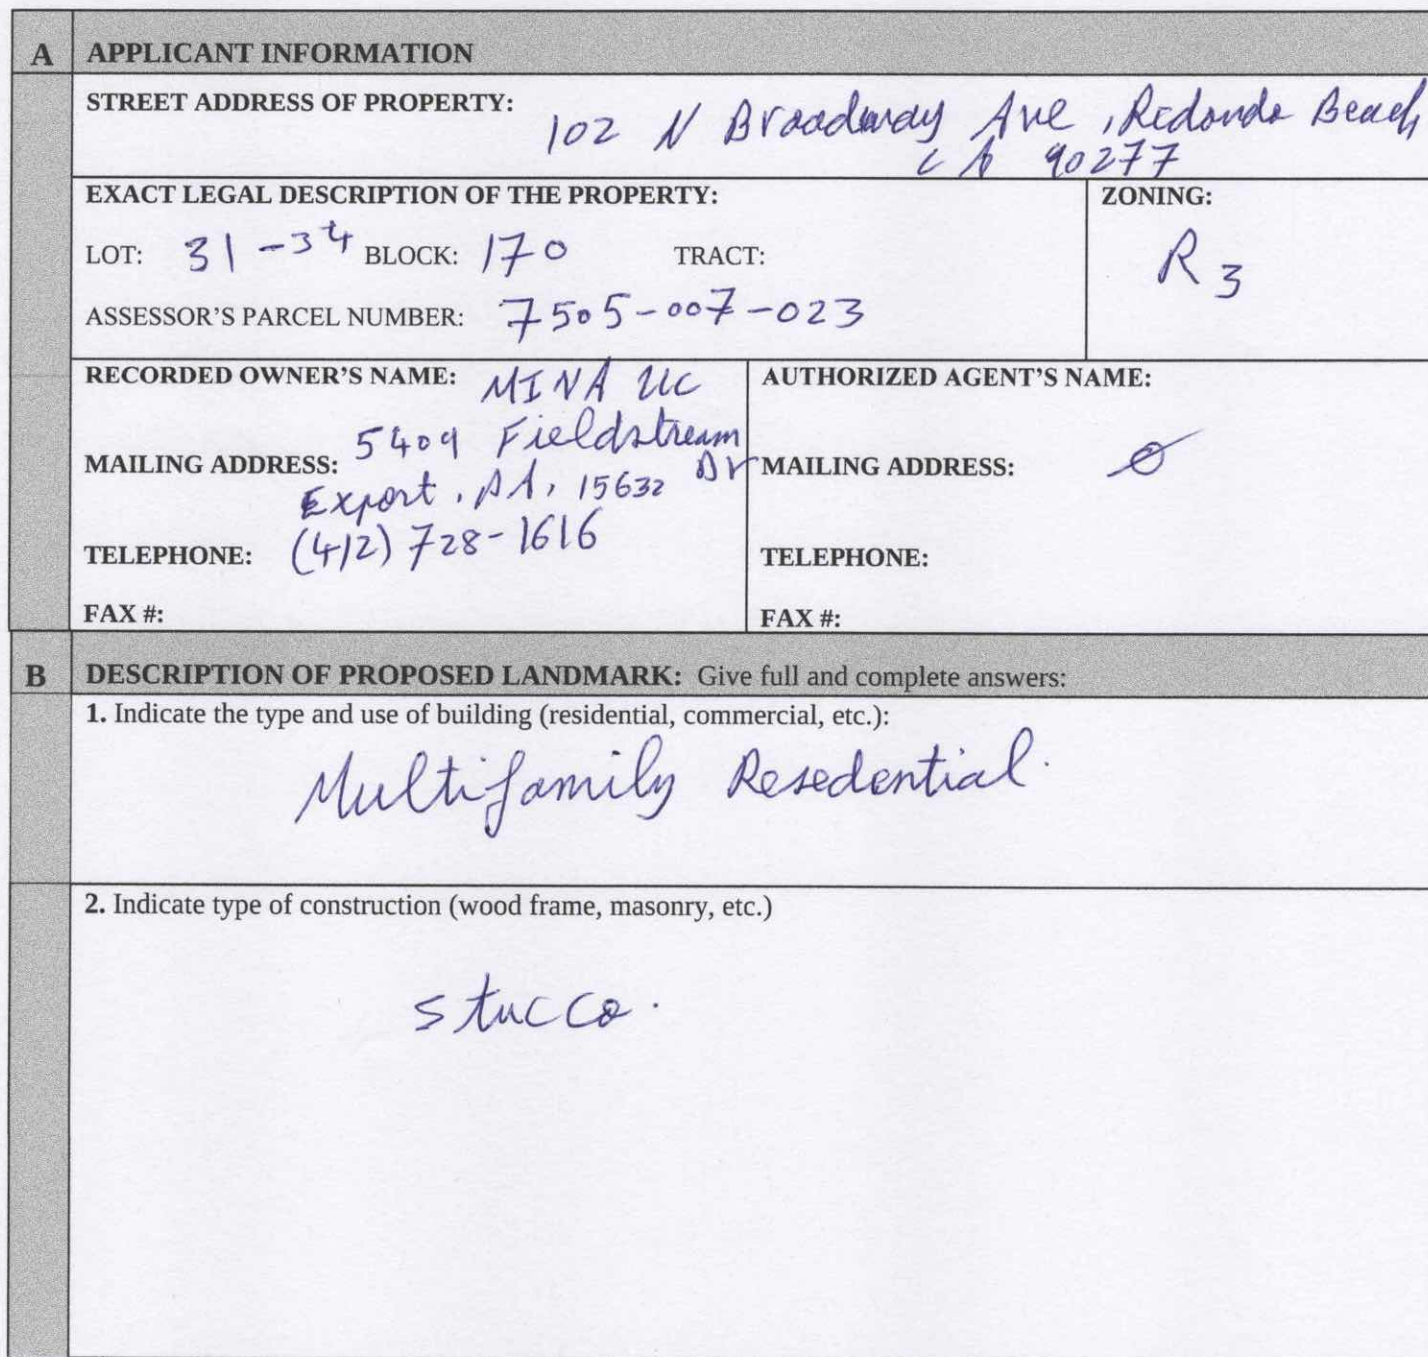 A APPLICANT INFORMATION
STREET ADDRESS OF PROPERTY: 102 N Broadway Ave, Redondo Beach
CA 90277
EXACT LEGAL DESCRIPTION OF THE PROPERTY:
LOT: 31-34 BLOCK: 170 TRACT:
ASSESSOR'S PARCEL NUMBER: 7505-007-023
ZONING:
R3
RECORDED OWNER'S NAME: MINA LLC
MAILING ADDRESS: 5409 Fieldstream Dr
Export, PA, 15632
TELEPHONE: (412) 728-1616
FAX #:
AUTHORIZED AGENT'S NAME:
MAILING ADDRESS: Ø
TELEPHONE:
FAX #:
B DESCRIPTION OF PROPOSED LANDMARK: Give full and complete answers:
1. Indicate the type and use of building (residential, commercial, etc.):
Multifamily Resedential.
2. Indicate type of construction (wood frame, masonry, etc.)
stucco.